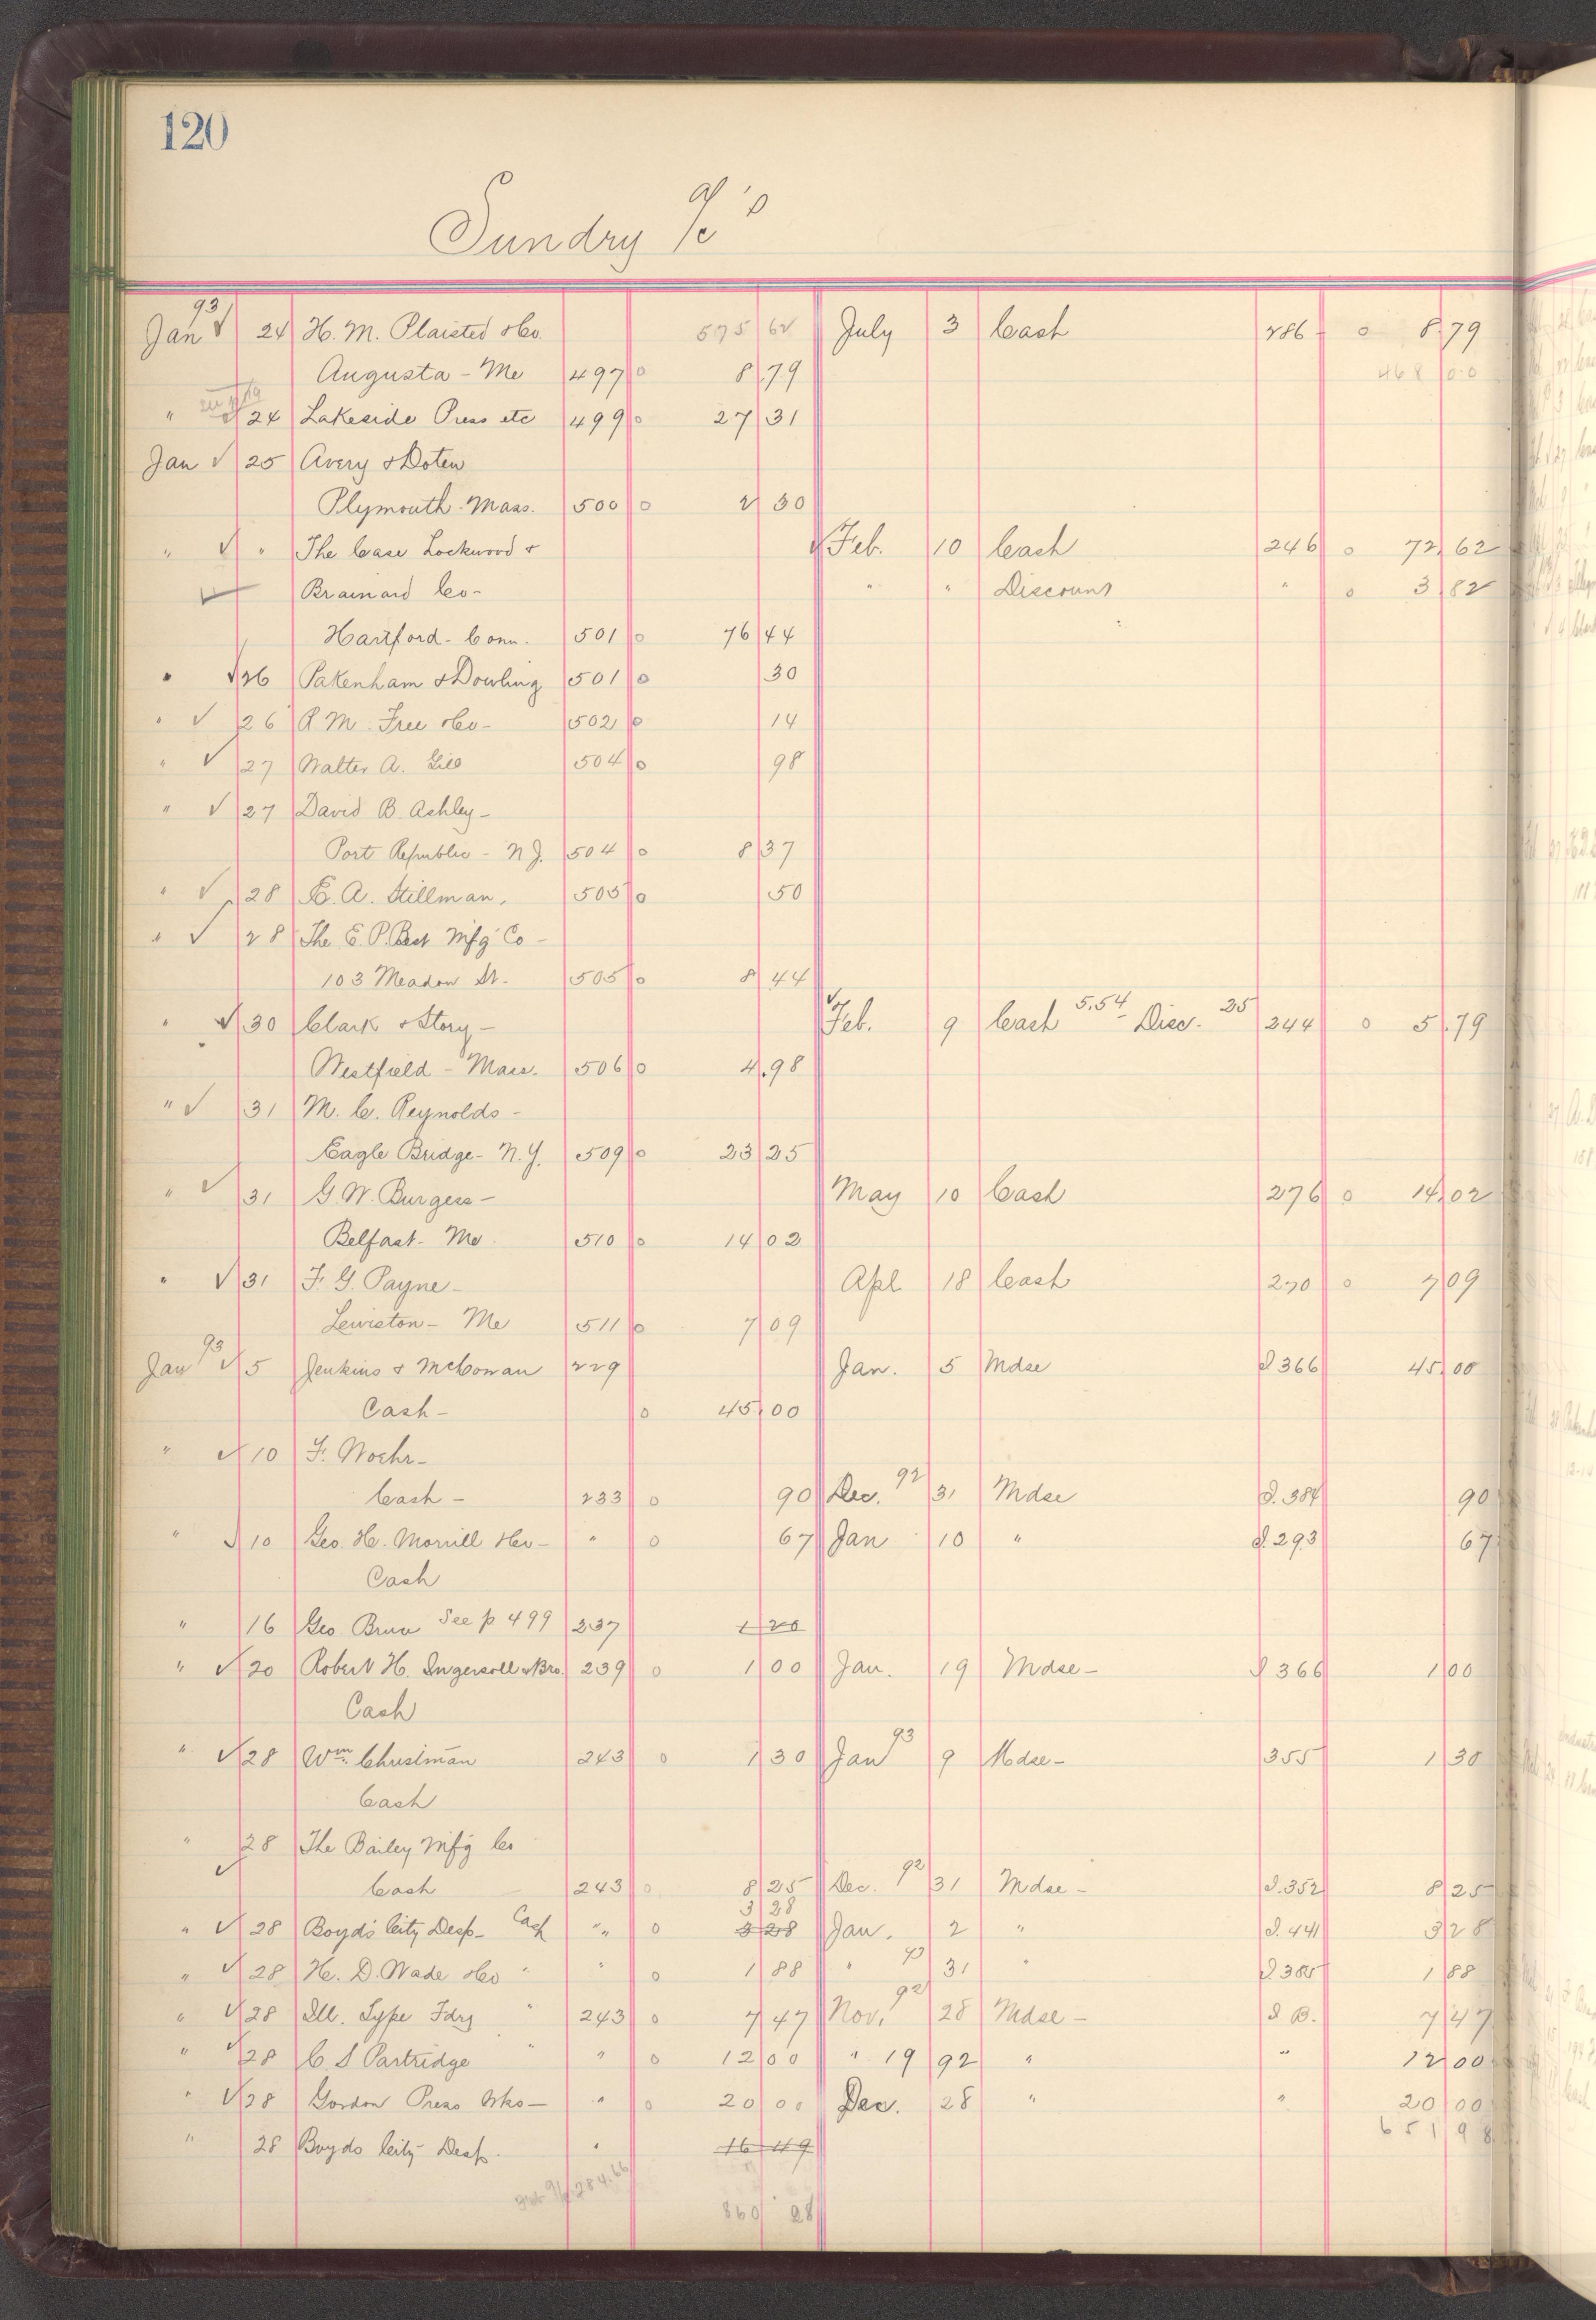 120
Sundry a/c's
93
Jan 24 H. M. Plaisted & Co. 575 62 July 3 Cash 286 0 8.79
Augusta - Me 497 0 8.79 468 00
" 24 Lakeside Press etc 499 0 27 31
Jan 25 Avery & Doten
Plymouth - Mass. 500 0 2 30
" " The Case Lockwood & Feb. 10 Cash 246 0 72 62
Brainard Co - " " Discount " 0 3 82
Hartford - Conn. 501 0 76 44
" 26 Pakenham & Dowling 501 0 30
" 26 R. M. Free & Co - 502 0 14
" 27 Walter A. 504 0 98
" 27 David B. Ashley -
Port Republic - N J. 504 0 8 37
" 28 E. A. Stillman. 505 0 50
" 28 The E. P. Best Mfg Co -
103 Meadow St. - 505 0 8 44
" 30 Clark & Story - Feb. 9 Cash 5.54 Disc. 25 244 0 5.79
Westfield - Mass. 506 0 4.98
" 31 M. C. Reynolds -
Eagle Bridge - N. Y. 509 0 23 25
" 31 G. W. Burgess - May 10 Cash 276 0 14 02
Belfast - Me. 510 0 14 02
" 31 F. G. Payne - Apl 18 Cash 270 0 7 09
Lewiston - Me 511 0 7 09
93
Jan 5 Jenkins & McCowan 229 Jan. 5 Mdse S 366 45.00
Cash - 0 45.00
" 10 F. Woehr -
Cash - 233 0 90 Dec. 92 31 Mdse S. 384 90
" 10 Geo. H. Morrill & Co - " 0 67 Jan 10 " S. 293 67
Cash
" 16 Geo. Bruce See p 499 237 1 20
" 20 Robert H. Ingersoll & Bro. 239 0 1 00 Jan. 19 Mdse - S 366 1 00
Cash
" 28 Wm. Christman 243 0 1 30 Jan 93 9 Mdse - 355 1 30
Cash
" 28 The Bailey Mfg Co
Cash 243 0 8 25 Dec. 92 31 Mdse - S. 352 8 25
3 28
" 28 Boyd's City Desp - Cash " 0 3 28 Jan. 2 " S. 441 3 28
" 28 H. D. Wade & Co " " 0 1 88 " 93 31 " S 385 1 88
" 28 Ill. Type Fdry " 243 0 7 47 Nov. 92 28 Mdse - S B. 7 47
" 28 C. S Partridge " " 0 12 00 " 19 92 " " 12 00
" 28 Gordon Press Wks - " 0 20 00 Dec. 28 " " 20 00
651 98
" 28 Boyds City Desp. " 16 49
284.66
860 28